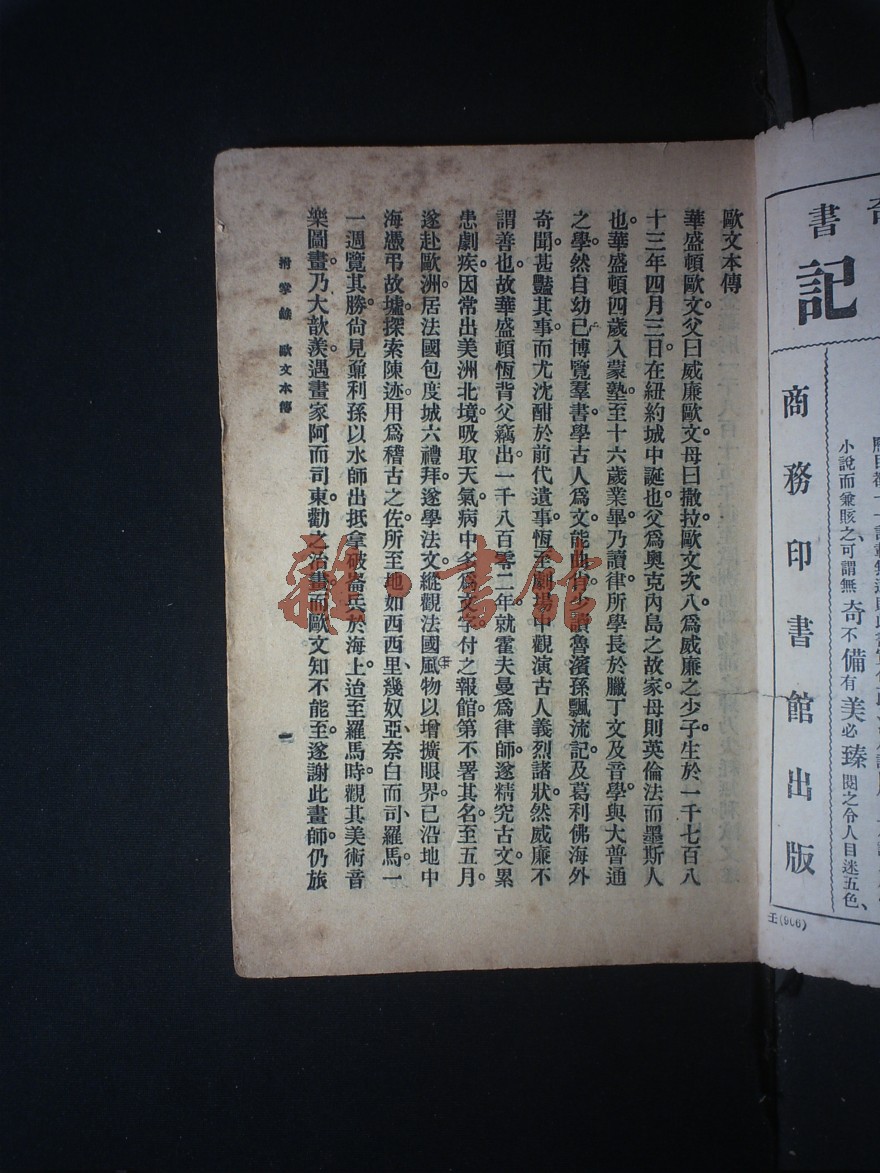 歐文本傳
華盛頓歐文。父曰威廉歐文。母曰撒拉歐文。次八。爲威廉之少子。生於一千七百八
十三年四月三日。在紐約城中誕也。父爲奧克內島之故家。母則英倫法而墨斯人
也。華盛頓四歲入蒙塾。至十六歲業畢。乃讀律。所學長於臘丁文及音學。與大普通
之學。然自幼已博覽羣書。學古人爲文。能
少讀魯濱孫飄流記。及葛利佛海外
奇聞。甚豔其事。而尤沈酣於前代遺事。恆至劇場中。觀演古人義烈諸狀。然威廉不
謂善也。故華盛頓恆背父竊出。一千八百零二年。就霍夫曼爲律師。遂精究古文。累
患劇疾。因常出美洲北境。吸取天氣。病中多爲文字。付之報館。第不署其名。至五月。
遂赴歐洲。居法國包度城六禮拜。遂學法文。縱觀法國風物。以增擴眼界。已沿地中
海憑弔故墟。探索陳迹。用爲稽古之佐。所至地如西西里、幾奴亞、奈白而司、羅馬、一
一週覽其勝。尙見鼐利孫以水師出抵拿破崙兵於海上。迨至羅馬時。觀其美術音
樂圖畫。乃大歆羨。遇畫家阿而司東。勸之治畫。而歐文知不能至。遂謝此畫師。仍旅
拊掌錄 歐文本傳
一
雜·書館
書
記
商務印書館出版
小說而兼賅之、可謂無奇不備有美必臻閱之令人目迷五色、
壬(906)